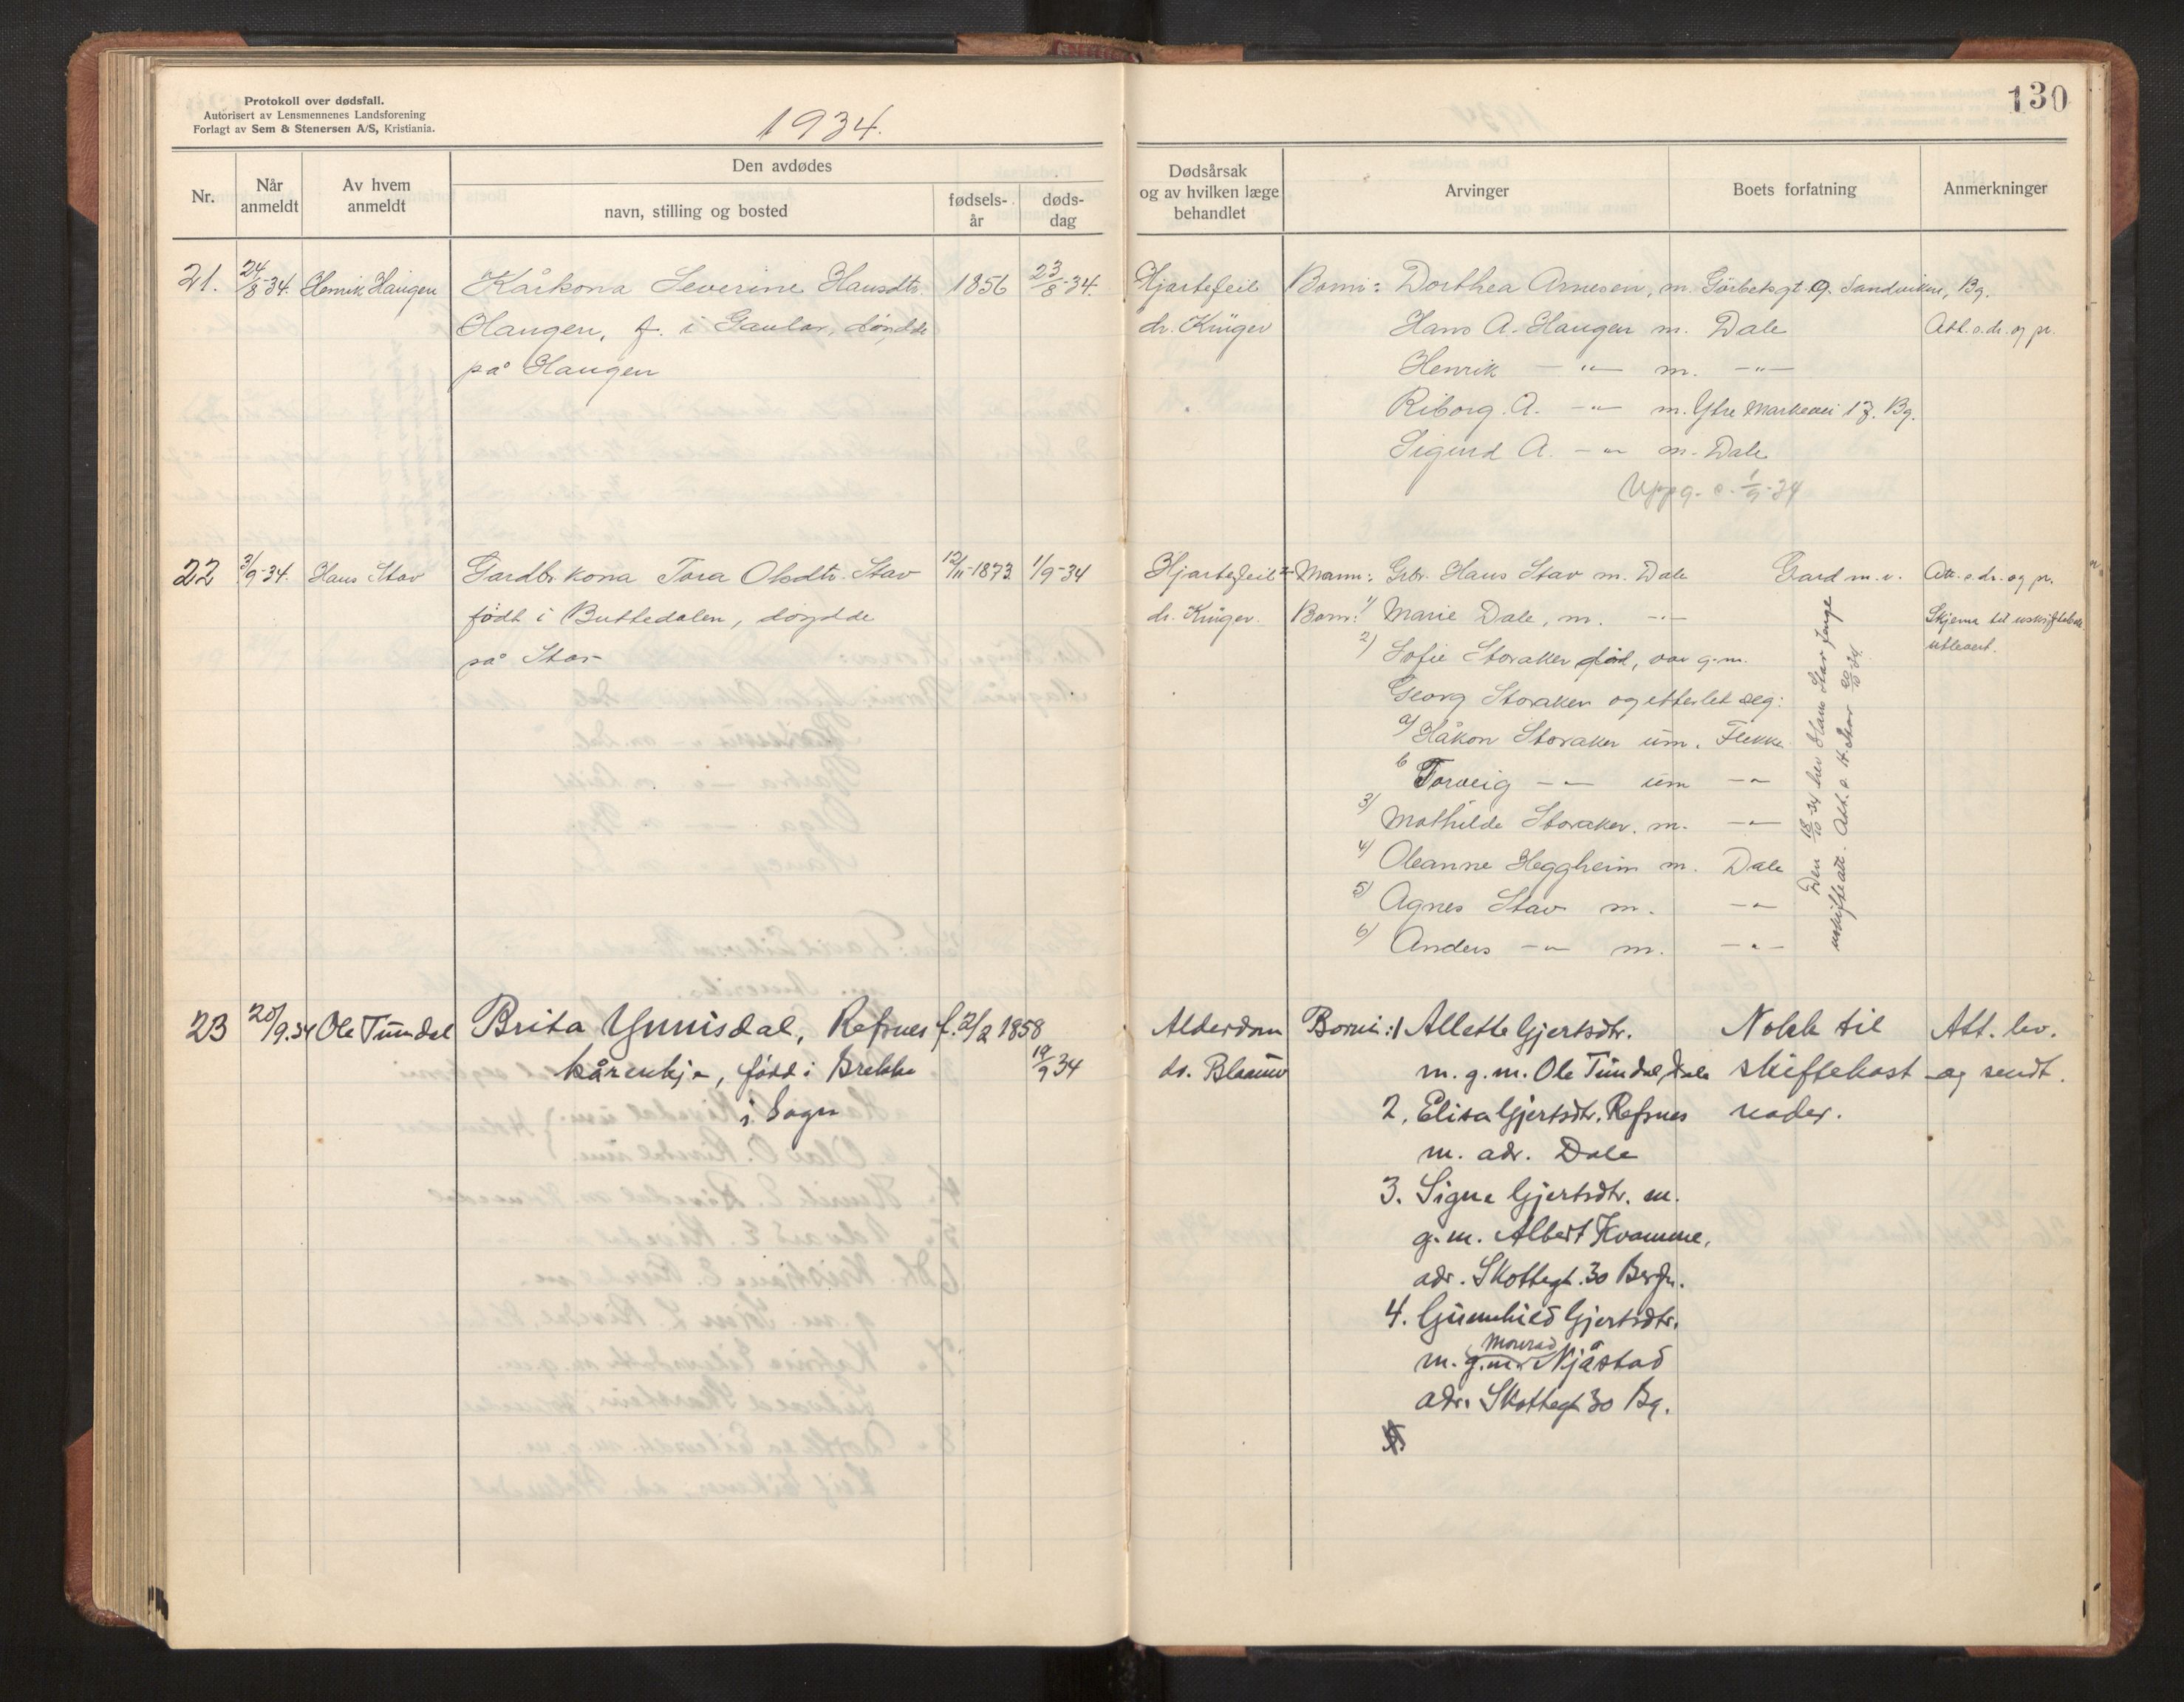 Protokoll over dødsfall.
Autorisert av Lensmennenes Landsforening
Forlagt av Sem & Stenersen A/S, Kristiania.
1934.
130
Nr.
Når anmeldt
Av hvem anmeldt
Den avdødes
navn, stilling og bosted
fødsels-år
døds-dag
Dødsårsak og av hvilken læge behandlet
Arvinger
Boets forfatning
Anmerkninger
21. 24/8-34. Henrik Haugen Kårkona Severine Hansdtr. 1856 23/8-34.
Haugen, f. i Gaular, døydde
på Haugen
Hjartefeil Borni: Dorthea Arnesen, m. Görbitsgt. 9. Sandviken, Bg.
dr. Krüger Hans A. Haugen m. Dale Att. s. dr. og pr.
Henrik - " - m. - " -
Riborg. A. - " - m. Ytre Markevei 17. Bg.
Sigurd A. - " - m. Dale
Uppg. s. 1/9-34
22 3/9-34. Hans Stav Gardbr.kona Tora Olsdtr. Stav 12/11-1873 1/9-34
født i Buttedalen, døydde
på Stav
Hjartefeil Mann: Grbr. Hans Stav m. Dale Gard m. v. Att. s. dr. og pr.
dr. Krüger. Born: 1) Marie Dale, m. - " - Skjema til uskiftebu
utlevert.
2) Sofie Storaker død, var g.m.
Georg Storaker og etterlet seg:
a) Håkon Storaker um. Flekke
b Torveig - " - um - " -
3) Mathilde Storaker. m. - " -
4) Oleanne Heggheim m. Dale
5) Agnes Stav m. - " -
6) Anders - " - m. - " -
Den 18/10-34 hev Hans Stav fenge
uskifteatt. Att. s. H. Stav 20/10 34.
23 20/9.34 Ole Tundal Brita Ynnisdal, Refsnes f. 2/2 1858
kårenkje, född i Brekke 19/9 34
i Sogn
Alderdom Borni: 1 Allette Gjertsdtr. Nokk til Att. lev.
dr. Blaauw m. g.m. Ole Tundal, Dale skiftekost og sendt.
2. Elisa Gjertsdtr. Refsnes nader.
m. adr. Dale
3. Signe Gjertsdtr. m.
g.m. Albert Kvamme,
adr. Skottegt. 30 Bergn.
4. Gunnhild Gjertsdtr.
Monrad
m. g.m. Njåstad
adr. Skottegt 30 Bg.